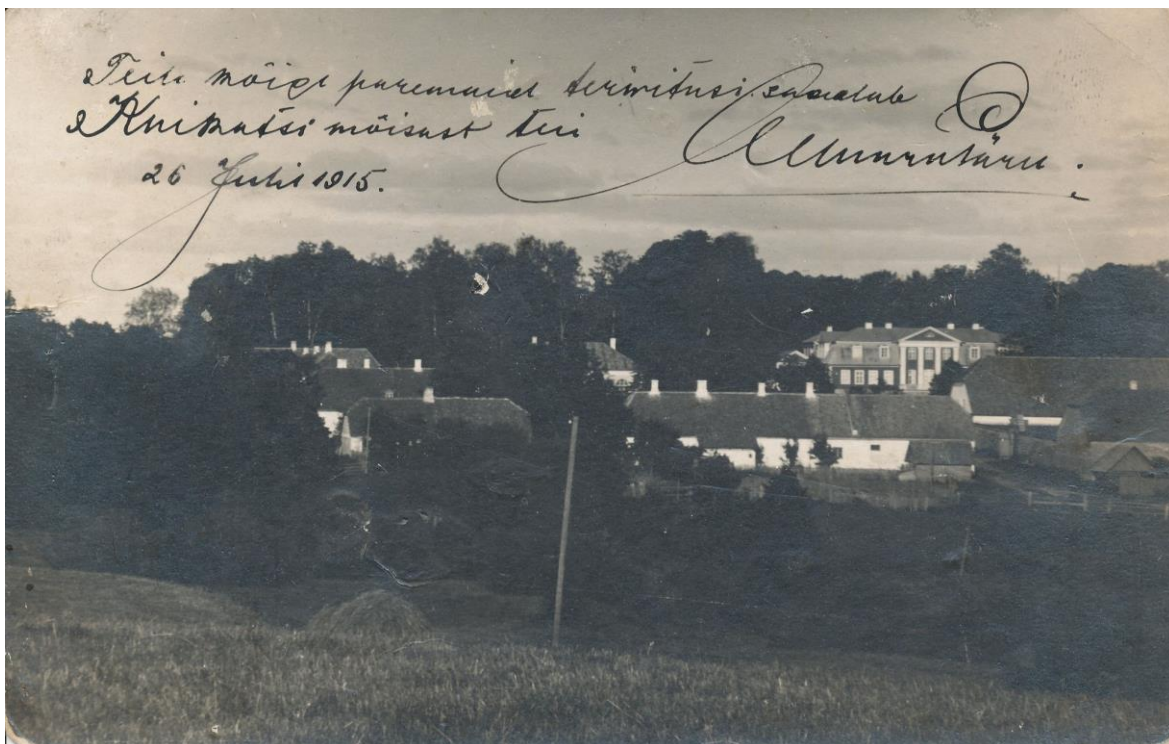 Teile kõige paremaid tervitusi saadab
Kuikatsi mõisast teie
26 Juli 1915.